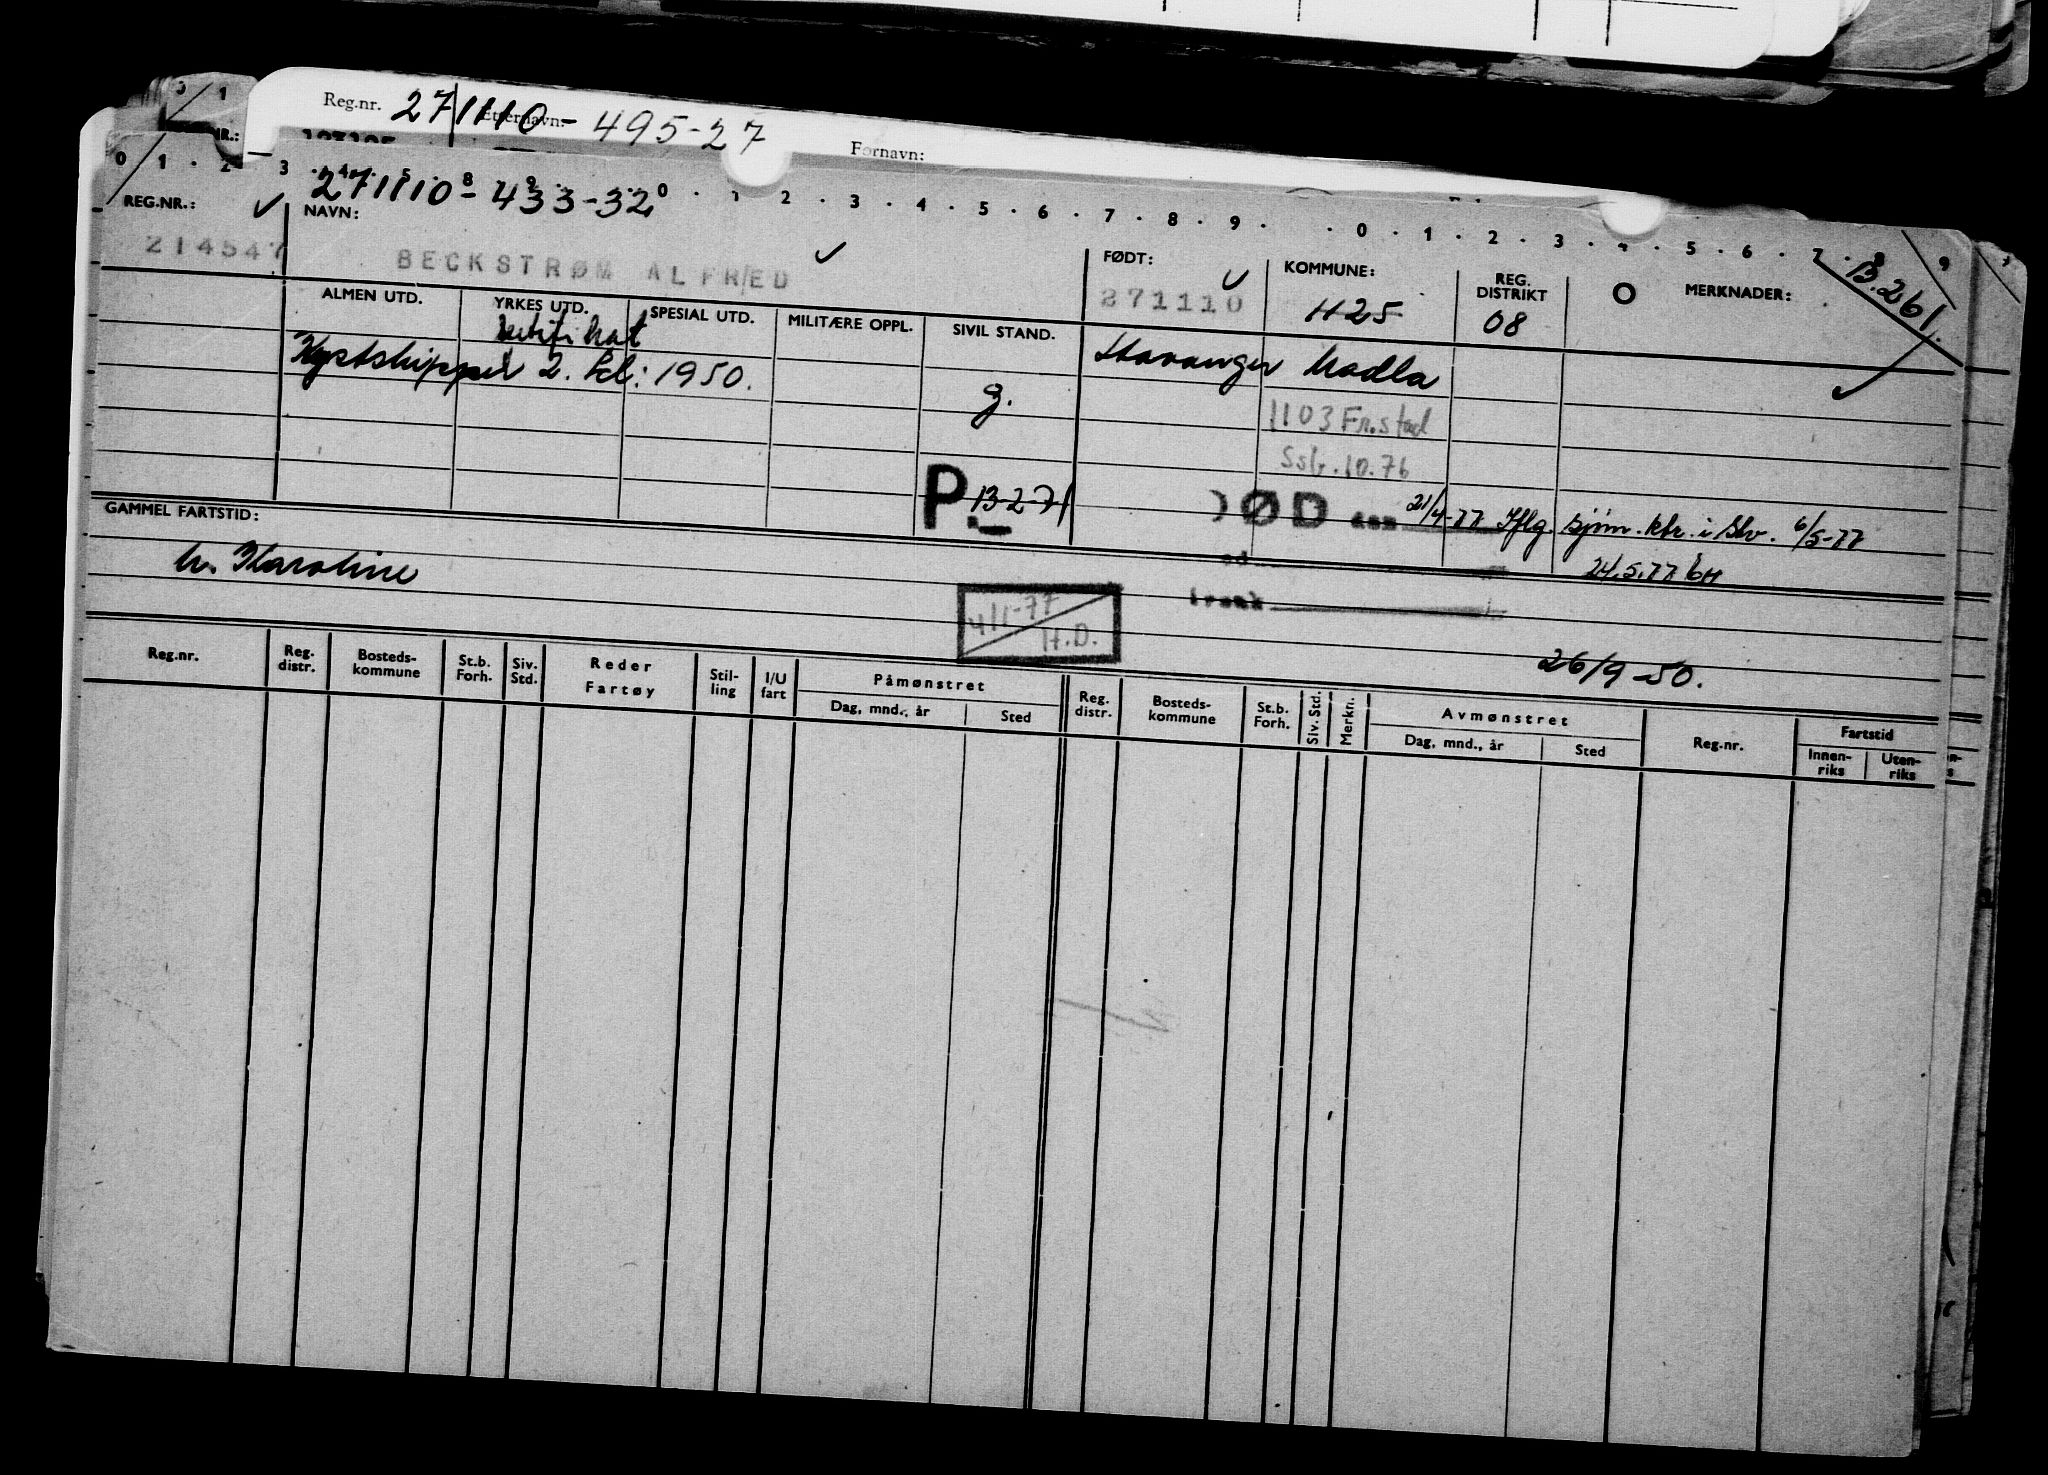 Reg.nr. 271110-495-27
Etternavn:
Fornavn:
271110-433-32
REG.NR.:
214547
NAVN:
BECKSTRØM ALFRED
FØDT:
271110
KOMMUNE:
1125
REG. DISTRIKT
08
MERKNADER:
B.261
ALMEN UTD.
YRKES UTD.
SPESIAL UTD.
MILITÆRE OPPL.
SIVIL STAND.
Kystskipper 2. kl: 1950.
g.
Stavanger Madla
1103 Fr.stad
Ssb. 10.76
P. 13-2-71
DØD den 21/4-77 Iflg. sjøm.ktr. i Slv. 6/5-77
24.5.77 bH
GAMMEL FARTSTID:
h. Karoline
4/1-77
H.D.
26/9-50.
Reg.nr.
Reg. distr.
Bosteds-kommune
St.b. Forh.
Siv. Std.
Reder
Fartøy
Stil-ling
I/U fart
Påmønstret
Dag, mnd., år
Sted
Reg. distr.
Bosteds-kommune
St.b. Forh.
Siv. Std.
Merkn.
Avmønstret
Dag, mnd., år
Sted
Reg.nr.
Fartstid
Innen-riks
Uten-riks